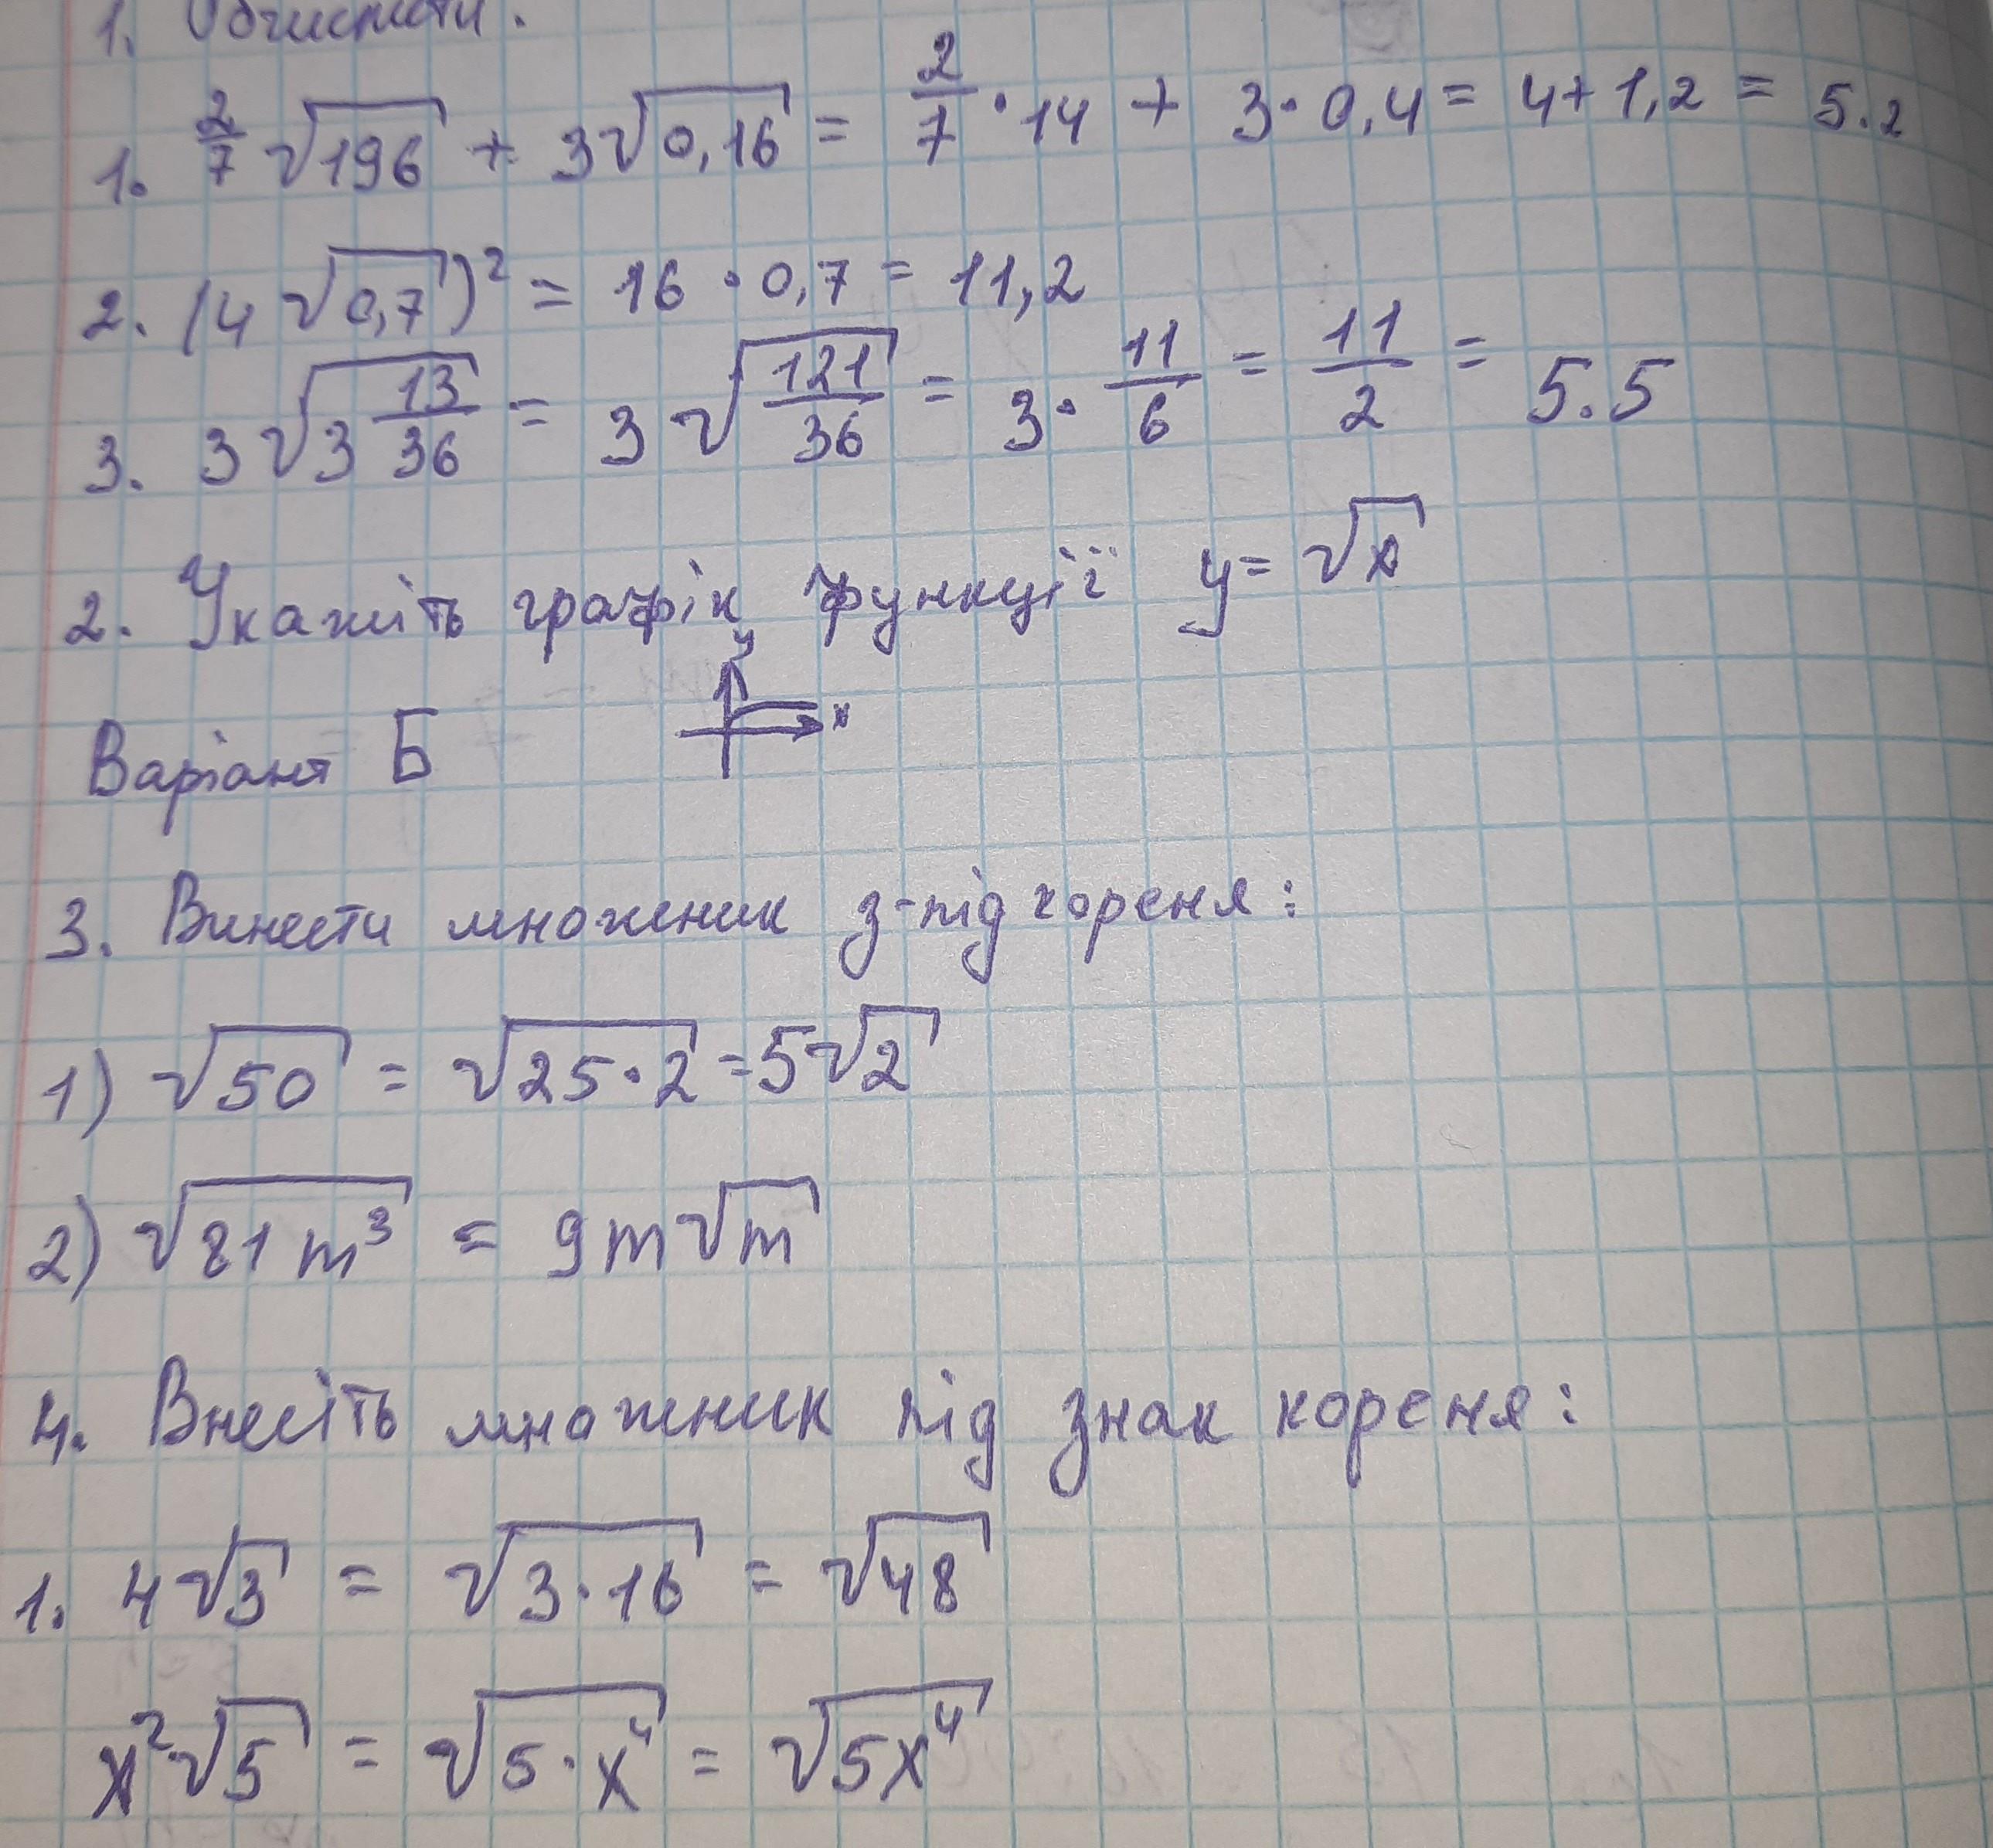 1. Обчислити.
1. 2/7 √196 + 3√0,16 = 2/7 · 14 + 3 · 0,4 = 4 + 1,2 = 5.2
2. (4 √0,7)² = 16 · 0,7 = 11,2
3. 3 √3 13/36 = 3 √121/36 = 3 · 11/6 = 11/2 = 5.5
2. Укажіть графік функції y = √x
y
Варіант Б x
3. Винести множник з-під кореня:
1) √50 = √25·2 = 5√2
2) √81 m³ = 9m√m
4. Внесіть множник під знак кореня:
1. 4√3 = √3·16 = √48
x²√5 = √5·x⁴ = √5x⁴